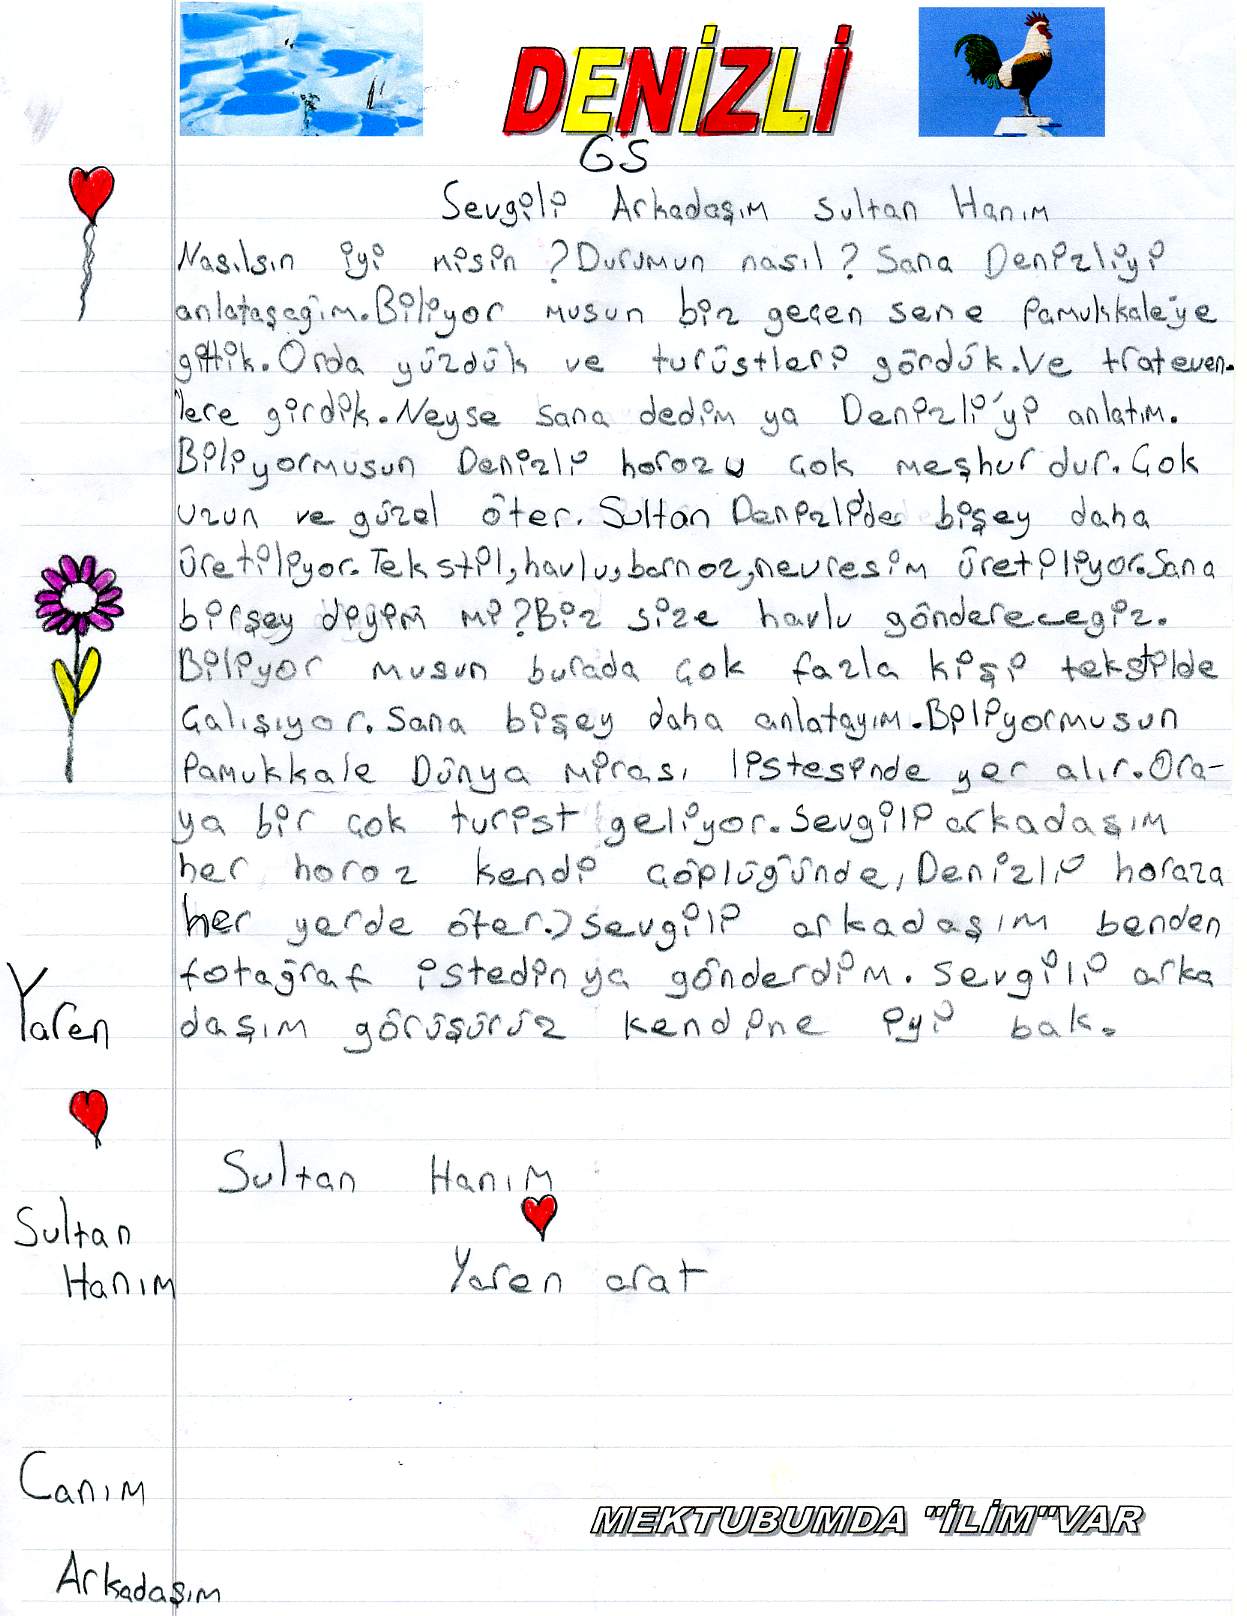 DENİZLİ
GS
Sevgili Arkadaşım Sultan Hanım
Nasılsın iyi misin ? Durumun nasıl ? Sana Denizliyi
anlataşağım. Biliyor musun biz geçen sene Pamukkale'ye
gittik. Orda yüzdük ve turüstleri gördük. Ve trateven-
lere girdik. Neyse sana dedim ya Denizli'yi anlatım.
Biliyormusun Denizli horozu çok meşhur dur. Çok
uzun ve güzel öter. Sultan Denizli'de bişey daha
üretiliyor. Tekstil, havlu, bornoz, nevresim üretiliyor. Sana
birşey diyim mi? Biz size havlu göndereceğiz.
Biliyor musun burada çok fazla kişi tekstilde
Çalışıyor. Sana bişey daha anlatayım. Biliyormusun
Pamukkale Dünya mirası listesinde yer alır. Ora-
ya bir çok turist geliyor. Sevgili arkadaşım
her horoz kendi çöplüğünde, Denizli horaza
her yerde öter.) Sevgili arkadaşım benden
fotağraf istedin ya gönderdim. Sevgili arka
daşım görüşürüz kendine iyi bak.
Yaren
Sultan Hanım
Sultan
Hanım
Yaren arat
Canım
Arkadaşım
MEKTUBUMDA "İLİM" VAR